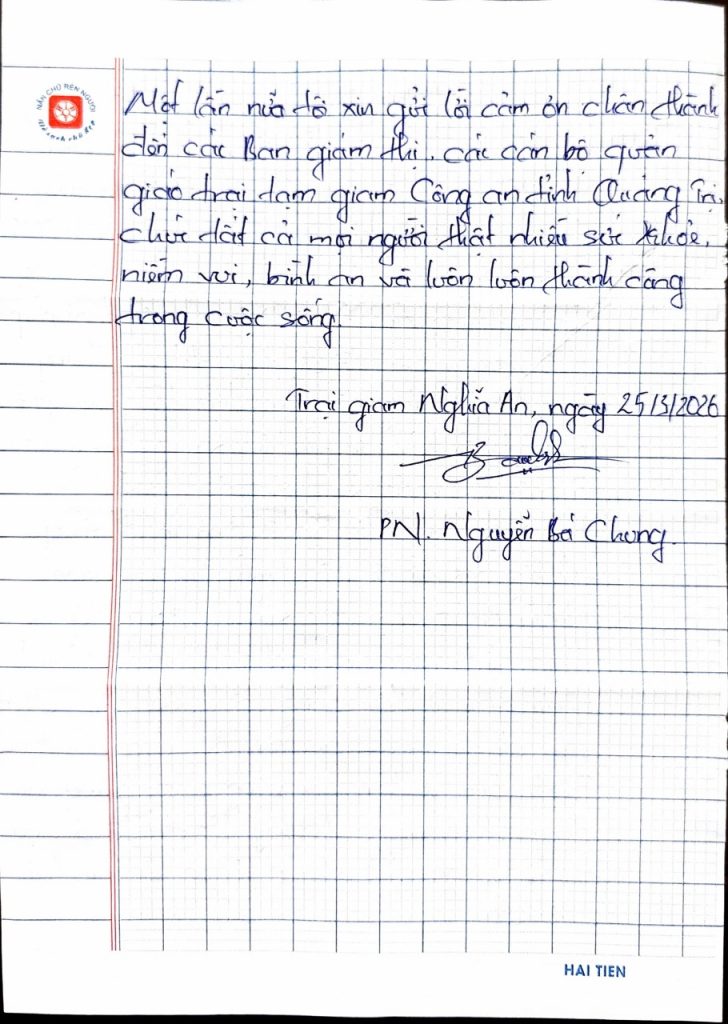 NẮN CHỮ RÈN NGƯỜI
Một lần nữa tô xin gửi lời cảm ơn chân thành
đến các Ban giám thị, các cán bộ quản
giáo trại tạm giam Công an tỉnh Quảng Trị,
chúc tất cả mọi người thật nhiều sức khỏe,
niềm vui, bình an và luôn luôn thành công
trong cuộc sống.
Trại giam Nghĩa An, ngày 25/3/2026
PN. Nguyễn Bá Chung.
HAI TIEN